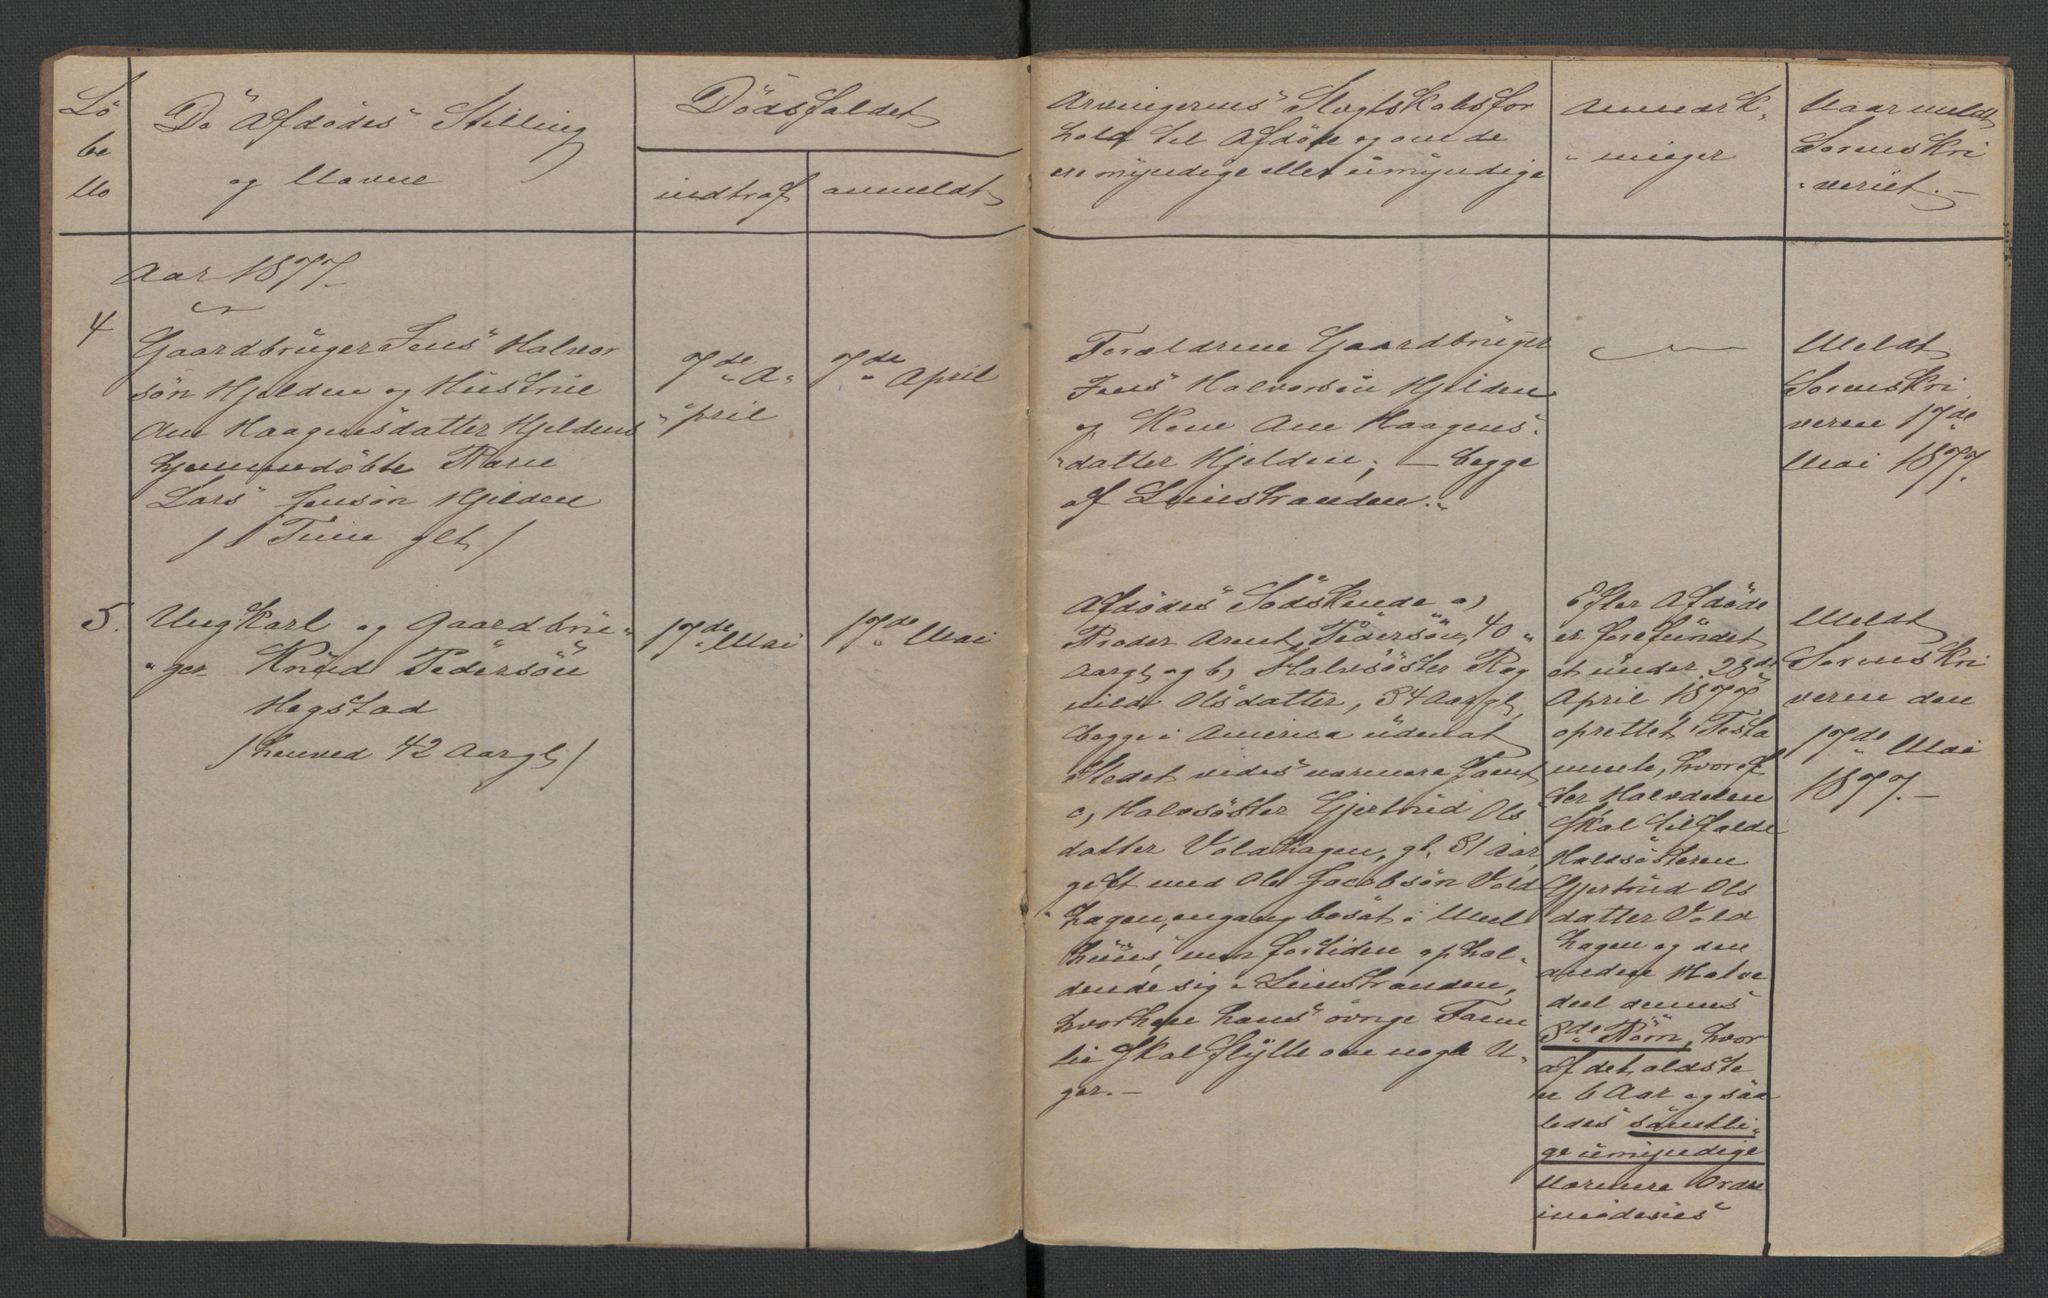 Lö
be
No
De Afdødes Stilling
og Navne
Dödsfaldet
indtraf
anmeldt
Arvingernes Slægtskabsfor
hold til Afdöde og om de
ere myndige eller umyndige
Anmærk-
ninger
Naar meldt
Sorenskri
veriet.—
Aar 1877.
4
Gaardbruger Jens Halvor
sön Hjelden og Hustrue
Ane Haagensdatter Hjeldens
hjemmedöbte Barn
Lars Jensön Hjelden
/1 Time glt/
7de A-
pril
7de April
Forældrene Gaardbruger
Jens Halvorsön Hjelden
og Kone Ane Haagens-
datter Hjelden; — begge
af Leinstranden.
Meldt
Sorenskri
veren 17de
Mai 1877.
5.
Ungkarl og Gaardbru-
ger Knud Pedersön
Hegstad
/henved 42 Aargl/
17de Mai
17de Mai
Afdödes Södskende a,
Broder Arnt Pedersön, 40
Aargl, og b, Halvsöster Rag
nild Olsdatter, 34 Aargl,
begge i America uden at
Stedet vides nærmere samt
c, Halvsöster Gjertrud Ols
datter Voldhagen, gl. 31 Aar,
gift med Ole Jacobsön Vold
hagen, engang bosat i Mel
huus, men fortiden ophol-
dende sig i Leinstranden,
hvorhen hans övrige Fami
lie skal flytte om nogle U-
ger.—
Efter Afdöde
er forefundet
et under 28de
April 1877
oprettet Testa
mente, hvoref
ter Halvdelen
skal tilfalde
Halvsösteren
Gjertrud Ols
datter Vold
hagen og den
anden Halve
deel dennes
3de Börn, hvor
af det ældste
er 6 Aar og saa
ledes samtli-
ge umyndige
Nærmere Ordre
imödesees
Meldt
Sorenskri
veren den
17de Mai
1877.—